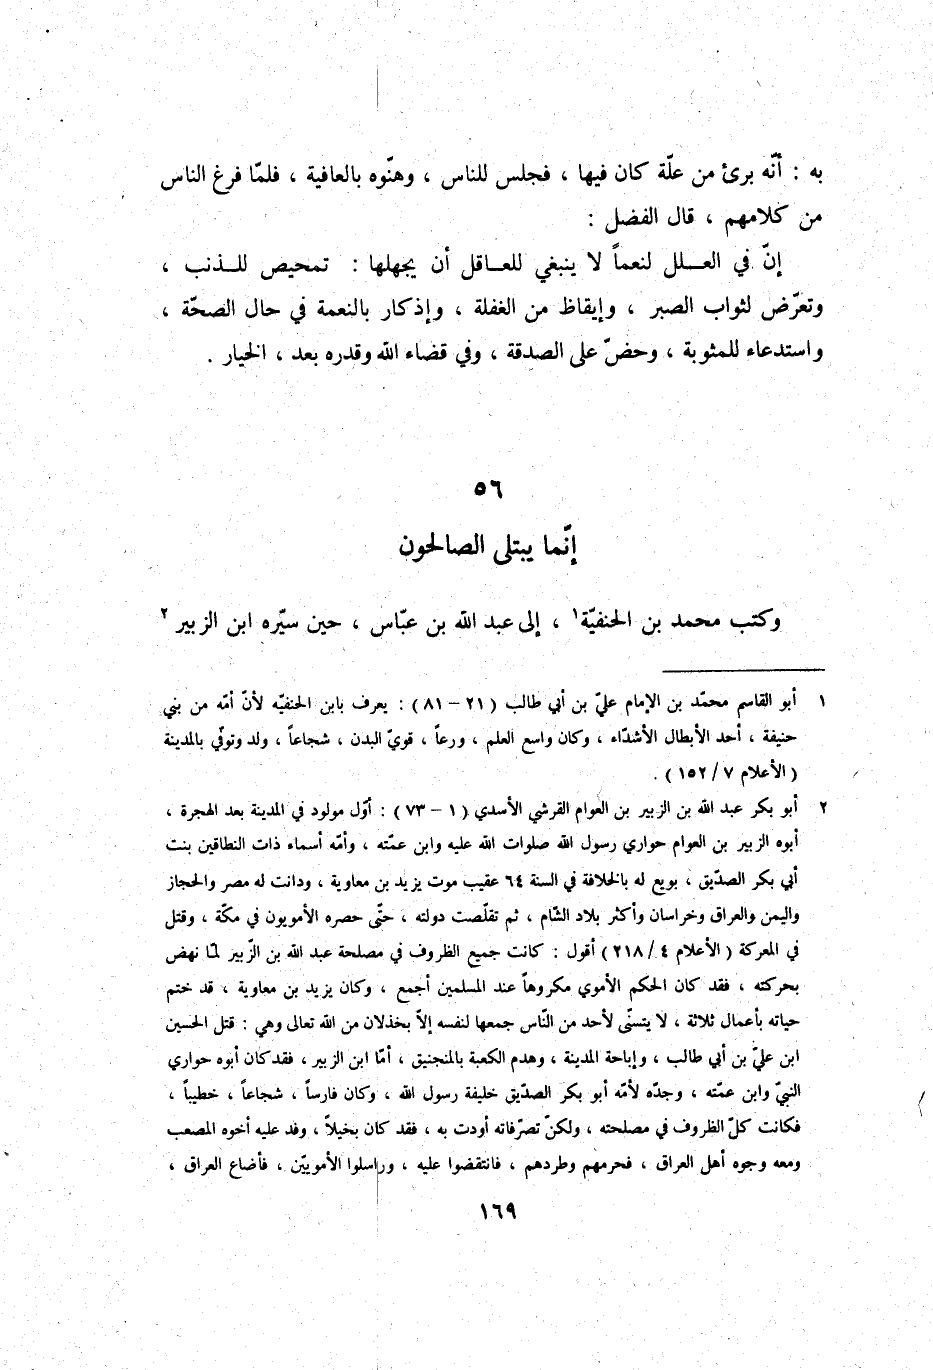 به : أنّه برئ من علّة كان فيها ، فجلس للناس ، وهنّوه بالعافية ، فلمّا فرغ الناس
من كلامهم ، قال الفضل :
إنّ في العلل لنعماً لا ينبغي للعاقل أن يجهلها : تمحيص للذنب ،
وتعرّض لثواب الصبر ، وإيقاظ من الغفلة ، وإذكار بالنعمة في حال الصحّة ،
واستدعاء للمثوبة ، وحضّ على الصدقة ، وفي قضاء الله وقدره بعد ، الخيار .
٥٦
إنّما يبتلى الصالحون
وكتب محمد بن الحنفيّة١ ، إلى عبد الله بن عبّاس ، حين سيّره ابن الزبير ٢
١ أبو القاسم محمّد بن الإمام عليّ بن أبي طالب ( ٢١ – ٨١ ) : يعرف بابن الحنفيّه لأنّ أمّه من بني
حنيفة ، أحد الأبطال الأشدّاء ، وكان واسع العلم ، ورعاً ، قويّ البدن ، شجاعاً ، ولد وتوفّي بالمدينة
( الأعلام ٧ / ١٥٢ ) .
٢ أبو بكر عبد الله بن الزبير بن العوام القرشي الأسدي ( ١ – ٧٣ ) : أوّل مولود في المدينة بعد الهجرة ،
أبوه الزبير بن العوام حواري رسول الله صلوات الله عليه وابن عمّته ، وأمّه أسماء ذات النطاقين بنت
أبي بكر الصدّيق ، بويع له بالخلافة في السنة ٦٤ عقيب موت يزيد بن معاوية ، ودانت له مصر والحجاز
واليمن والعراق وخراسان وأكثر بلاد الشّام ، ثم تقلّصت دولته ، حتّى حصره الأمويون في مكّة ، وقتل
في المعركة ( الأعلام ٤ / ٢١٨ ) أقول : كانت جميع الظروف في مصلحة عبد الله بن الزّبير لمّا نهض
بحركته ، فقد كان الحكم الأموي مكروهاً عند المسلمين أجمع ، وكان يزيد بن معاوية ، قد ختم
حياته بأعمال ثلاثة ، لا يتسنّى لأحد من النّاس جمعها لنفسه إلاّ بخذلان من الله تعالى وهي : قتل الحسين
ابن عليّ بن أبي طالب ، وإباحة المدينة ، وهدم الكعبة بالمنجنيق ، أمّا ابن الزبير ، فقد كان أبوه حواري
النبيّ وابن عمّته ، وجدّه لأمّه أبو بكر الصدّيق خليفة رسول الله ، وكان فارساً ، شجاعاً ، خطيباً ،
فكانت كلّ الظروف في مصلحته ، ولكنّ تصرّفاته أودت به ، فقد كان بخيلاً ، وفد عليه أخوه المصعب
ومعه وجوه أهل العراق ، فحرمهم وطردهم ، فانتقضوا عليه ، وراسلوا الأمويّين ، فأضاع العراق ،
١٦٩